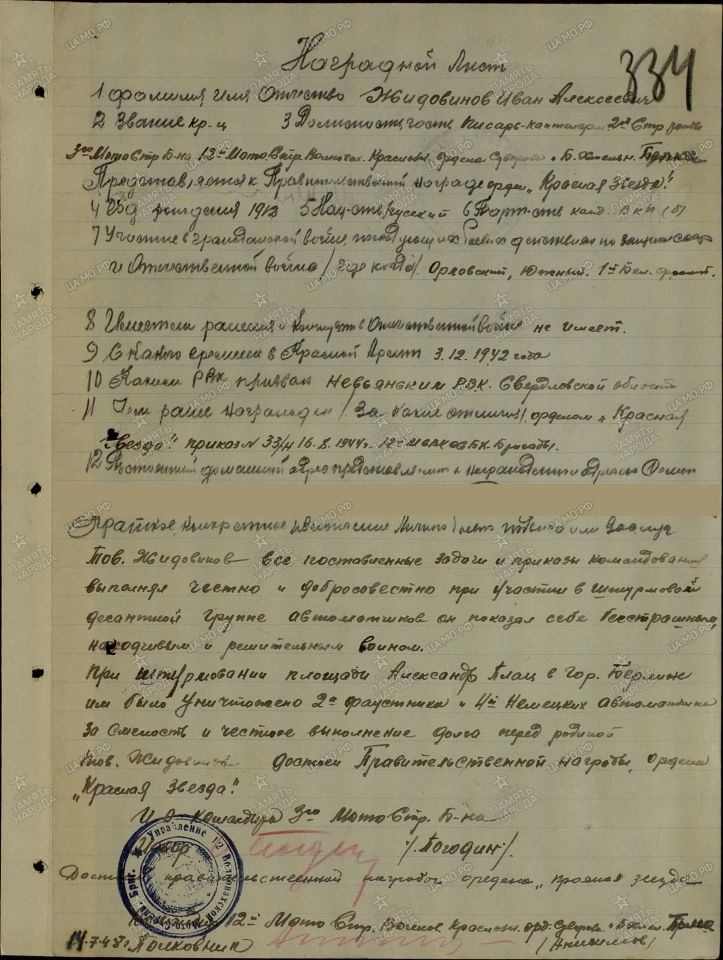 Наградной Лист
334
1 Фамилия Имя Отчество Жидовинов Иван Алексеевич
2 Звание кр-ц 3 Должность, часть писарь-каптенар 2й Стр роты
3го Мото Стр. Б-на 13й Мото Стр. Краснозн. ордена Суворова и Б. Хмельн. Бригады
Представляется к Правительственной награде орден „Красная Звезда".
4 Год рождения 1912 5 Нац-сть русский 6 Парт-сть канд. ВКП(б)
7 Участие в гражданской войне, последующих боевых действиях по защите СССР
и Отечественной войне /где когда/. Орловский, Южный. 1й Бел. фронт.
8 Имеет ли ранения и контузии в Отечественной войне не имеет.
9 С какого времени в Красной Армии 3.12.1942 года
10 Каким РВК призван Невьянским РВК. Свердловской области
11 Чем ранее награжден /за какие отличия/ орденом „Красная
Звезда". приказ N 33/н 16.8.1944г. 12й Бригады.
12 Постоянный домашний адрес представляемого к награждению и адрес семьи
Краткое, конкретное изложение личного боевого подвига или заслуг
Тов. Жидовинов все поставленные задачи и приказы командования
выполнял честно и добросовестно при участии в штурмовой
десантной группе автоматчиков он показал себе бесстрашным,
находчивым и решительным воином.
При штурмовании площади Александр Плац в гор. Берлин
им было уничтожено 2а фаустника и 4ре Немецких автоматчика
За смелость и честное выполнение долга перед родиной
тов. Жидовинов достоен Правительственной награды, ордена
„Красная Звезда".
И О командира 3го Мото Стр. Б-на
/Погодин/.
Достоин правительственной награды ордена „Красная звезда
12й Мото Стр. Краснозн. орд. Суворова
14.7.45г. Полковник /Анисимов/
Управление 12 Волновахской Мото-Стрелк. Бриг.
ПАМЯТЬ НАРОДА
ЦАМО.РФ